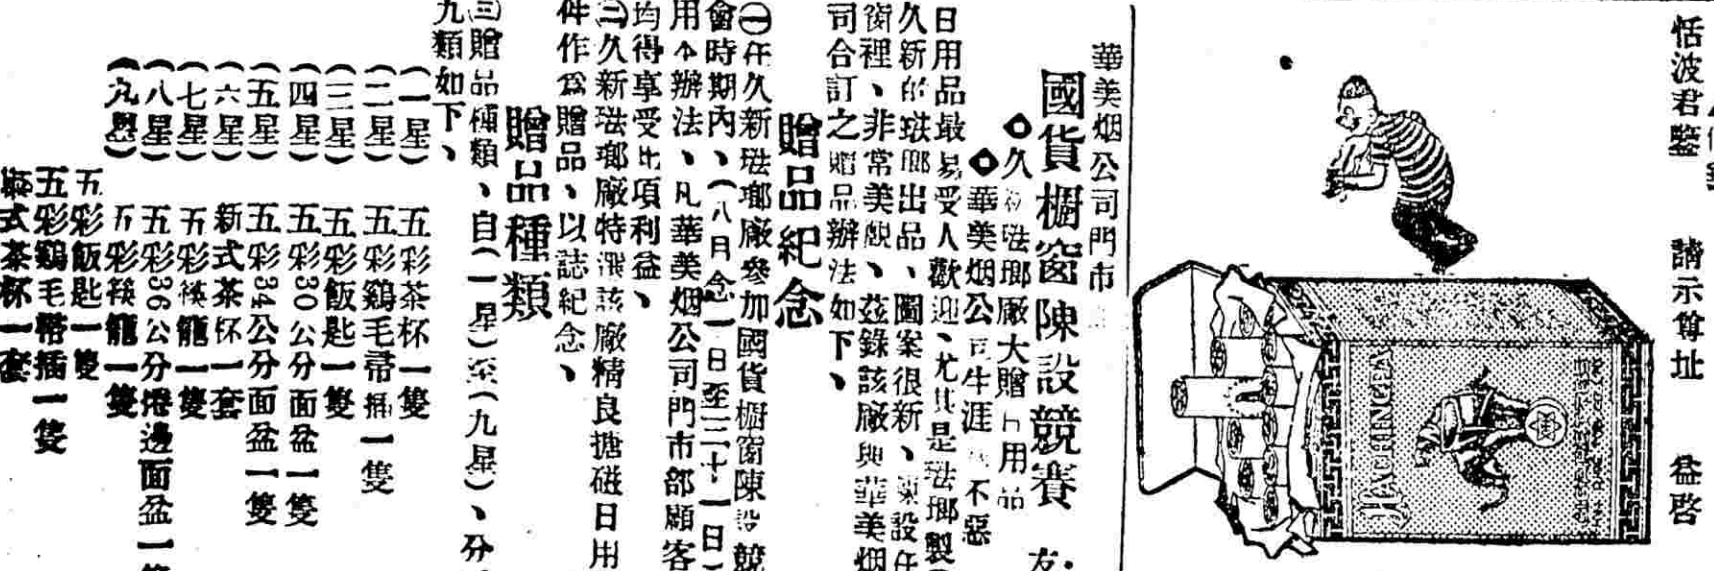 恬波君鑒　請示尊址　益啓
HACHINGEA
華美烟公司門市
國貨櫥窗陳設競賽　友
◆久新琺瑯廠大贈日用品
◆華美烟公司生涯不惡
日用品最易受人歡迎、尤其是琺瑯製
久新的琺瑯出品、圖案很新、陳設在
窗裡、非常美觀、茲錄該廠與華美烟
司合訂之贈品辦法如下、
贈品紀念
㊀在久新琺瑯廠參加國貨櫥窗陳設競
會時期內、（八月念一日至三十一日）
用本辦法、凡華美烟公司門市部顧客
均得享受此項利益、
㊁久新琺瑯廠特選該廠精良搪磁日用
件作爲贈品、以誌紀念、
贈品種類
㊂贈品種類、自（一星）至（九星）、分
九類如下、
（一星）　五彩茶杯一隻
（二星）　五彩鷄毛帚插一隻
（三星）　五彩飯匙一隻
（四星）　五彩30公分面盆一隻
（五星）　五彩34公分面盆一隻
（六星）　新式茶杯一套
（七星）　五彩筷籠一隻
（八星）　五彩36公分捲邊面盆一隻
（九星）　五彩筷籠一隻
五彩飯匙一隻
五彩鷄毛帚插一隻
新式茶杯一套